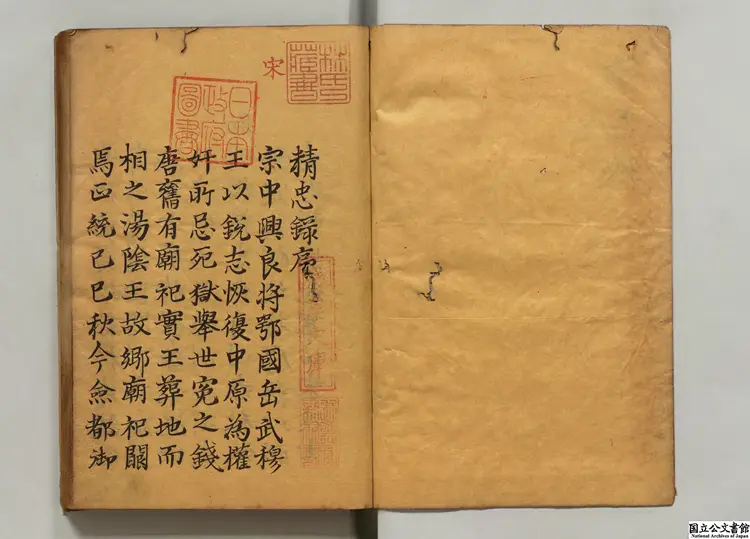 林氏藏書
日本政府圖書
精忠錄序
宋宗中興良將鄂國岳武穆
王以銳志恢復中原為權
奸所忌死獄舉世寃之錢
唐舊有廟祀實王葬地而
相之湯陰王故鄉廟祀闕
焉正統己巳秋今僉都御
国立公文書館
National Archives of Japan